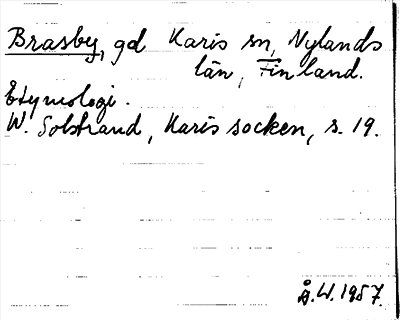 Brasby, gd Karis sn, Nylands
län, Finland.
Etymologi.
W. Solstrand, Karis socken, s. 19.
Å.W. 1957.